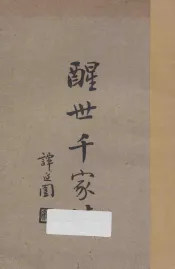 醒世千家
譚延闓